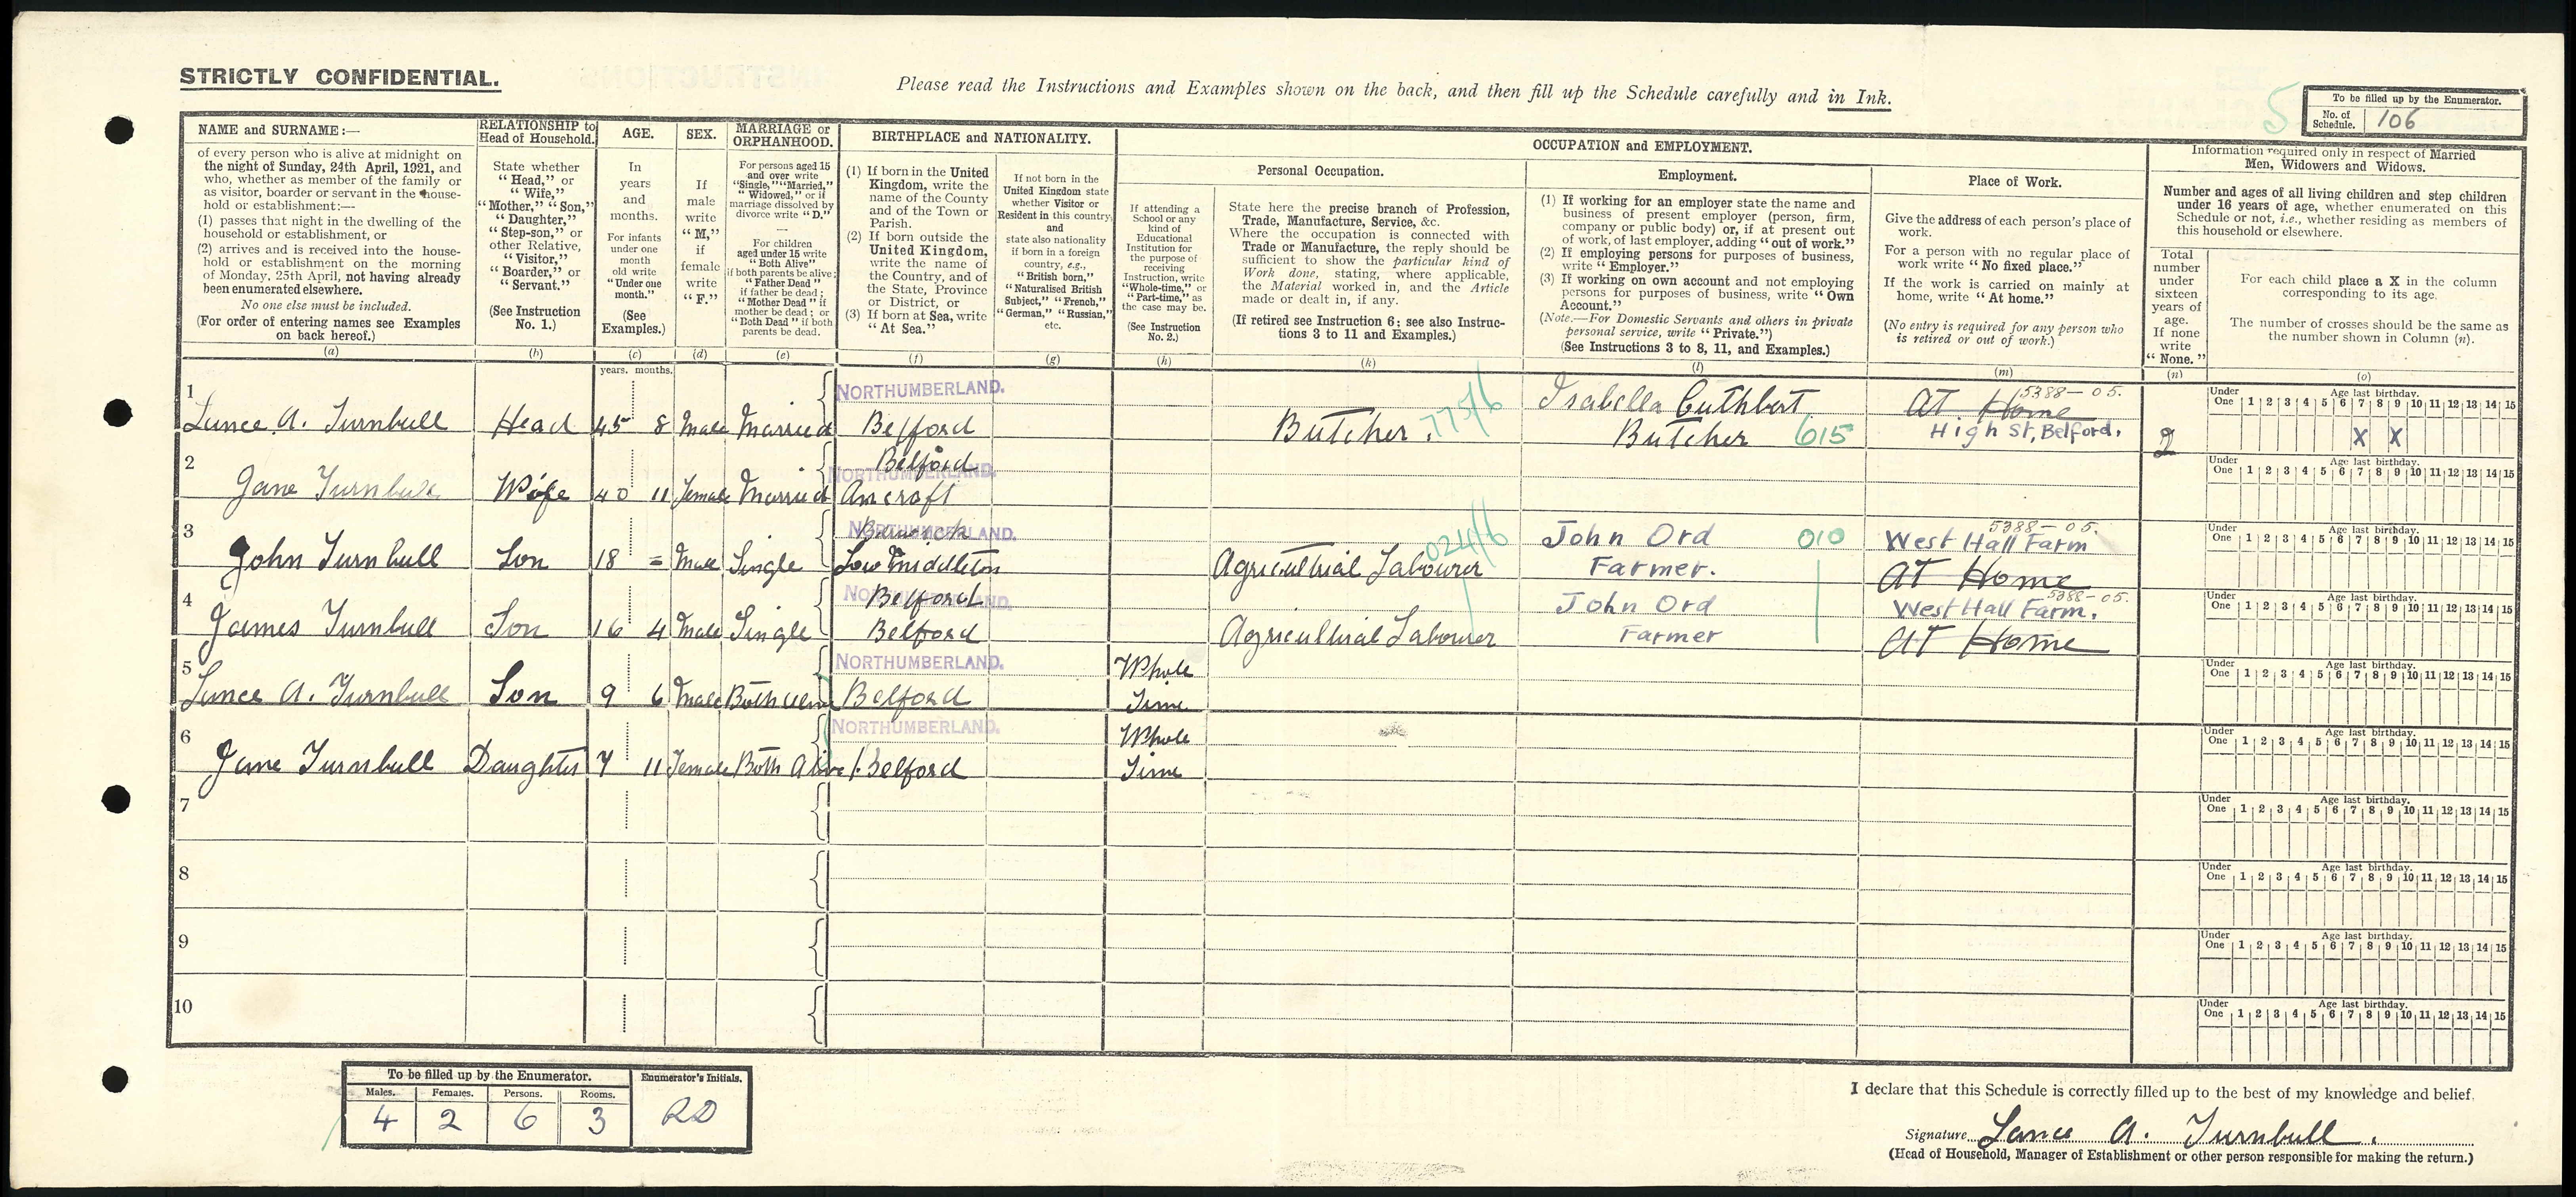 STRICTLY CONFIDENTIAL.
Please read the Instructions and Examples shown on the back, and then fill up the Schedule carefully and in Ink.
5
To be filled up by the Enumerator.
No. of Schedule. 106
NAME and SURNAME:—
of every person who is alive at midnight on
the night of Sunday, 24th April, 1921, and
who, whether as member of the family or
as visitor, boarder or servant in the house-
hold or establishment:—
(1) passes that night in the dwelling of the
household or establishment, or
(2) arrives and is received into the house-
hold or establishment on the morning
of Monday, 25th April, not having already
been enumerated elsewhere.
No one else must be included.
(For order of entering names see Examples
on back hereof.)
(a)
RELATIONSHIP to
Head of Household.
State whether
"Head," or
"Wife,"
"Mother," "Son,"
"Daughter,"
"Step-son," or
other Relative,
"Visitor,"
"Boarder," or
"Servant."
(See Instruction
No. 1.)
(b)
AGE.
In
years
and
months.
For infants
under one
month
old write
"Under one
month."
(See
Examples.)
(c)
years. months.
SEX.
If
male
write
"M,"
if
female
write
"F."
(d)
MARRIAGE or
ORPHANHOOD.
For persons aged 15
and over write
"Single," "Married,"
"Widowed," or if
marriage dissolved by
divorce write "D."
—
For children
aged under 15 write
"Both Alive"
if both parents be alive;
"Father Dead"
if father be dead;
"Mother Dead" if
mother be dead; or
"Both Dead" if both
parents be dead.
(e)
BIRTHPLACE and NATIONALITY.
(1) If born in the United
Kingdom, write the
name of the County
and of the Town or
Parish.
(2) If born outside the
United Kingdom,
write the name of
the Country, and of
the State, Province
or District, or
(3) If born at Sea, write
"At Sea."
(f)
If not born in the
United Kingdom state
whether Visitor or
Resident in this country,
and
state also nationality
if born in a foreign
country, e.g.,
"British born,"
"Naturalised British
Subject," "French,"
"German," "Russian,"
etc.
(g)
OCCUPATION and EMPLOYMENT.
Personal Occupation.
If attending a
School or any
kind of
Educational
Institution for
the purpose of
receiving
Instruction, write
"Whole-time," or
"Part-time," as
the case may be.
(See Instruction
No. 2.)
(h)
State here the precise branch of Profession,
Trade, Manufacture, Service, &c.
Where the occupation is connected with
Trade or Manufacture, the reply should be
sufficient to show the particular kind of
Work done, stating, where applicable,
the Material worked in, and the Article
made or dealt in, if any.
(If retired see Instruction 6; see also Instruc-
tions 3 to 11 and Examples.)
(k)
Employment.
(1) If working for an employer state the name and
business of present employer (person, firm,
company or public body) or, if at present out
of work, of last employer, adding "out of work."
(2) If employing persons for purposes of business,
write "Employer."
(3) If working on own account and not employing
persons for purposes of business, write "Own
Account."
(Note.—For Domestic Servants and others in private
personal service, write "Private.")
(See Instructions 3 to 8, 11, and Examples.)
(l)
Place of Work.
Give the address of each person's place of
work.
For a person with no regular place of
work write "No fixed place."
If the work is carried on mainly at
home, write "At home."
(No entry is required for any person who
is retired or out of work.)
(m)
Information required only in respect of Married
Men, Widowers and Widows.
Number and ages of all living children and step children
under 16 years of age, whether enumerated on this
Schedule or not, i.e., whether residing as members of
this household or elsewhere.
Total
number
under
sixteen
years of
age.
If none
write
"None."
(n)
For each child place a X in the column
corresponding to its age.
The number of crosses should be the same as
the number shown in Column (n).
(o)
1 NORTHUMBERLAND. Isabella Cuthbert At Home 5388-05.
Lance A. Turnbull Head 45 8 Male Married Belford Butcher. 775/6 Butcher 615 High St, Belford. 2
Under One Age last birthday. 1 2 3 4 5 6 7 8 9 10 11 12 13 14 15
X X
2 NORTHUMBERLAND. Belford
Jane Turnbull Wife 40 11 Female Married Ancroft
Under One Age last birthday. 1 2 3 4 5 6 7 8 9 10 11 12 13 14 15
3 NORTHUMBERLAND. Berwick 024/6 John Ord 010 5388-05. West Hall Farm
John Turnbull Son 18 = Male Single Low Middleton Agricultrial Labourer Farmer. At Home
Under One Age last birthday. 1 2 3 4 5 6 7 8 9 10 11 12 13 14 15
4 NORTHUMBERLAND. Belford John Ord 5388-05. West Hall Farm.
James Turnbull Son 16 4 Male Single Belford Agricultrial Labourer Farmer At Home
Under One Age last birthday. 1 2 3 4 5 6 7 8 9 10 11 12 13 14 15
5 NORTHUMBERLAND. Whole
Lance A. Turnbull Son 9 6 Male Both Belford Time
Under One Age last birthday. 1 2 3 4 5 6 7 8 9 10 11 12 13 14 15
6 NORTHUMBERLAND. Whole
Jane Turnbull Daughter 7 11 Female Both Alive Belford Time
Under One Age last birthday. 1 2 3 4 5 6 7 8 9 10 11 12 13 14 15
7
Under One Age last birthday. 1 2 3 4 5 6 7 8 9 10 11 12 13 14 15
8
Under One Age last birthday. 1 2 3 4 5 6 7 8 9 10 11 12 13 14 15
9
Under One Age last birthday. 1 2 3 4 5 6 7 8 9 10 11 12 13 14 15
10
Under One Age last birthday. 1 2 3 4 5 6 7 8 9 10 11 12 13 14 15
To be filled up by the Enumerator. Enumerator's Initials.
Males. Females. Persons. Rooms.
4 2 6 3 RD
I declare that this Schedule is correctly filled up to the best of my knowledge and belief.
Signature Lance A. Turnbull.
(Head of Household, Manager of Establishment or other person responsible for making the return.)